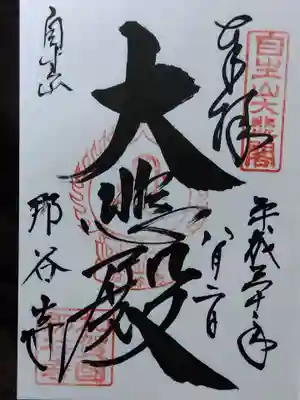 奉拝
自生山大悲閣
平成三十年
八月二日
大悲殿
自生山
那谷寺